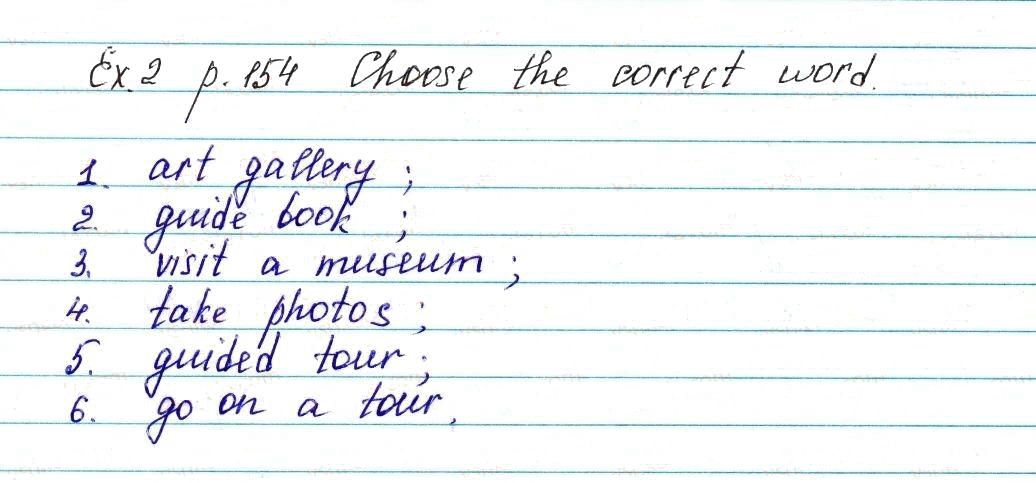 Ex.2 p.154 Choose the correct word.
1. art gallery;
2. guide book;
3. visit a museum;
4. take photos;
5. guided tour;
6. go on a tour.